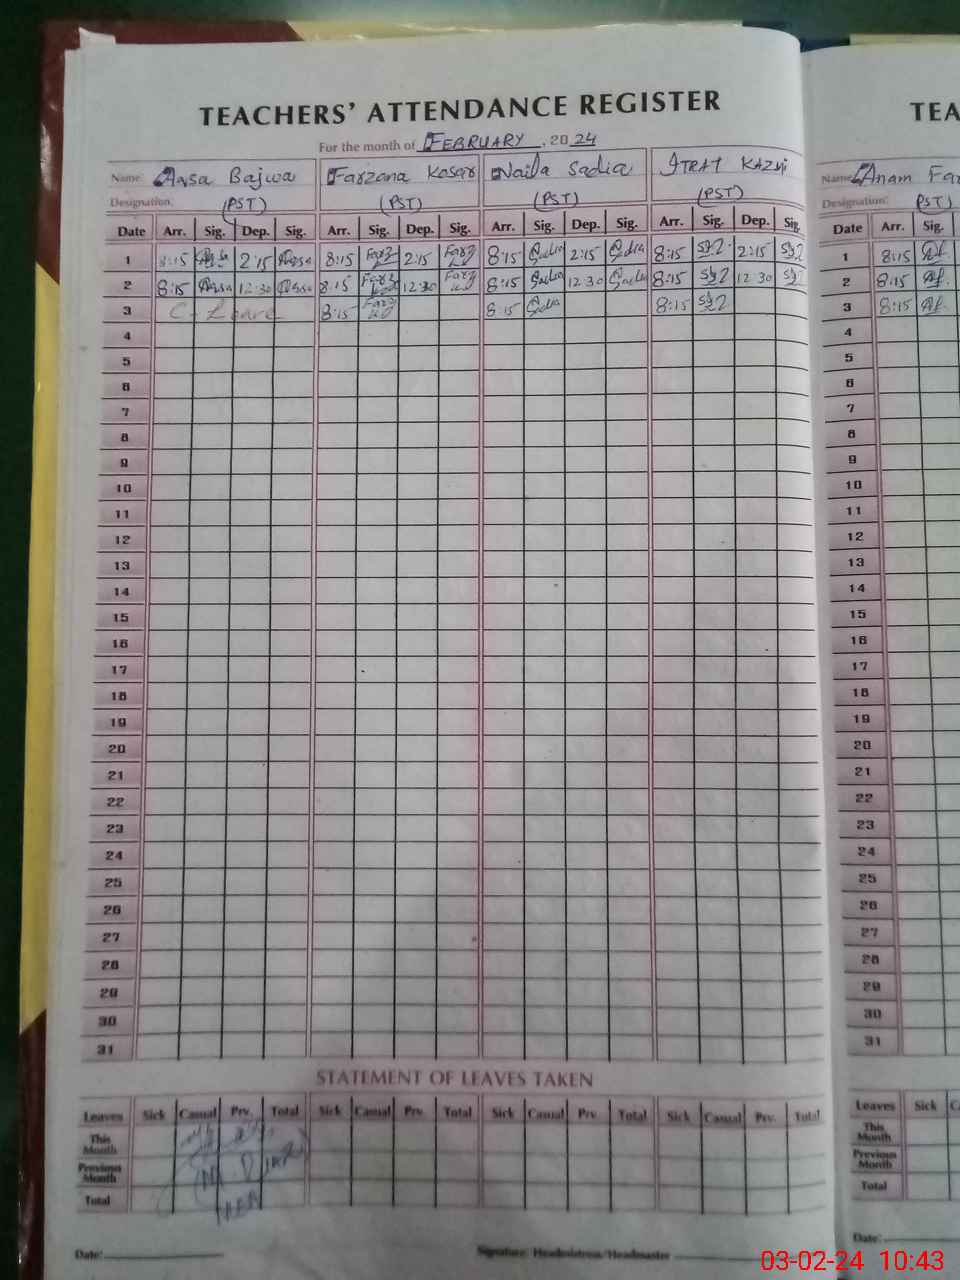 TEACHERS' ATTENDANCE REGISTER
For the month of FEBRUARY, 2024
Name: Aqsa Bajwa Farzana Kosar Naila Sadia ITRAT KAZMI
Designation: (PST) (PST) (PST) (PST)
Date Arr. Sig. Dep. Sig. Arr. Sig. Dep. Sig. Arr. Sig. Dep. Sig. Arr. Sig. Dep. Sig.
1 8:15 Aqsa 2:15 Aqsa 8:15 Farz 2:15 Farz 8:15 Sadia 2:15 Sadia 8:15 2:15
2 8:15 Aqsa 12:30 Aqsa 8:15 Farz 12:30 Farz 8:15 Sadia 12:30 Sadia 8:15 12:30
3 C. Leave 8:15 Farz 8:15 Sadia 8:15
4
5
6
7
8
9
10
11
12
13
14
15
16
17
18
19
20
21
22
23
24
25
26
27
28
29
30
31
STATEMENT OF LEAVES TAKEN
Leaves Sick Casual Prv. Total Sick Casual Prv. Total Sick Casual Prv. Total Sick Casual Prv. Total
This Month
Previous Month
Total
Date: Signature: Headmistress/Headmaster
TEA
Name: Anam Far
Designation: (PST)
Date Arr. Sig.
1 8:15
2 8:15
3 8:15
4
5
6
7
8
9
10
11
12
13
14
15
16
17
18
19
20
21
22
23
24
25
26
27
28
29
30
31
Leaves Sick
This Month
Previous Month
Total
Date:
03-02-24 10:43